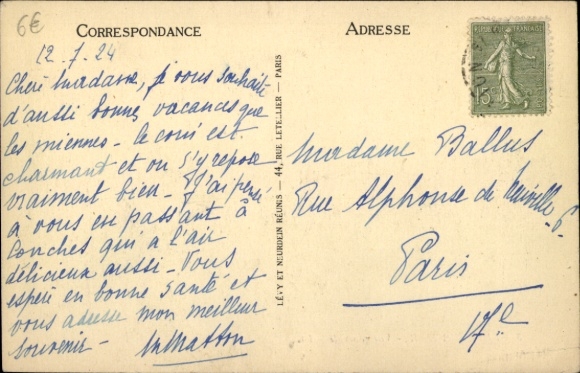 6€
CORRESPONDANCE
ADRESSE
12.7.24
Chère madame, je vous souhaite
d'aussi bonnes vacances que
les miennes - le coin est
charmant et on s'y repose
vraiment bien - J'ai pensé
à vous en passant à
Conches qui a l'air
délicieux aussi - Vous
espère en bonne santé et
vous adresse mon meilleur
souvenir -
REPUBLIQUE FRANÇAISE
15
LÉVY ET NEURDEIN RÉUNIS - 44, RUE LETELLIER - PARIS
Madame Ballus
Rue Alphonse de Neuville
Paris
17e